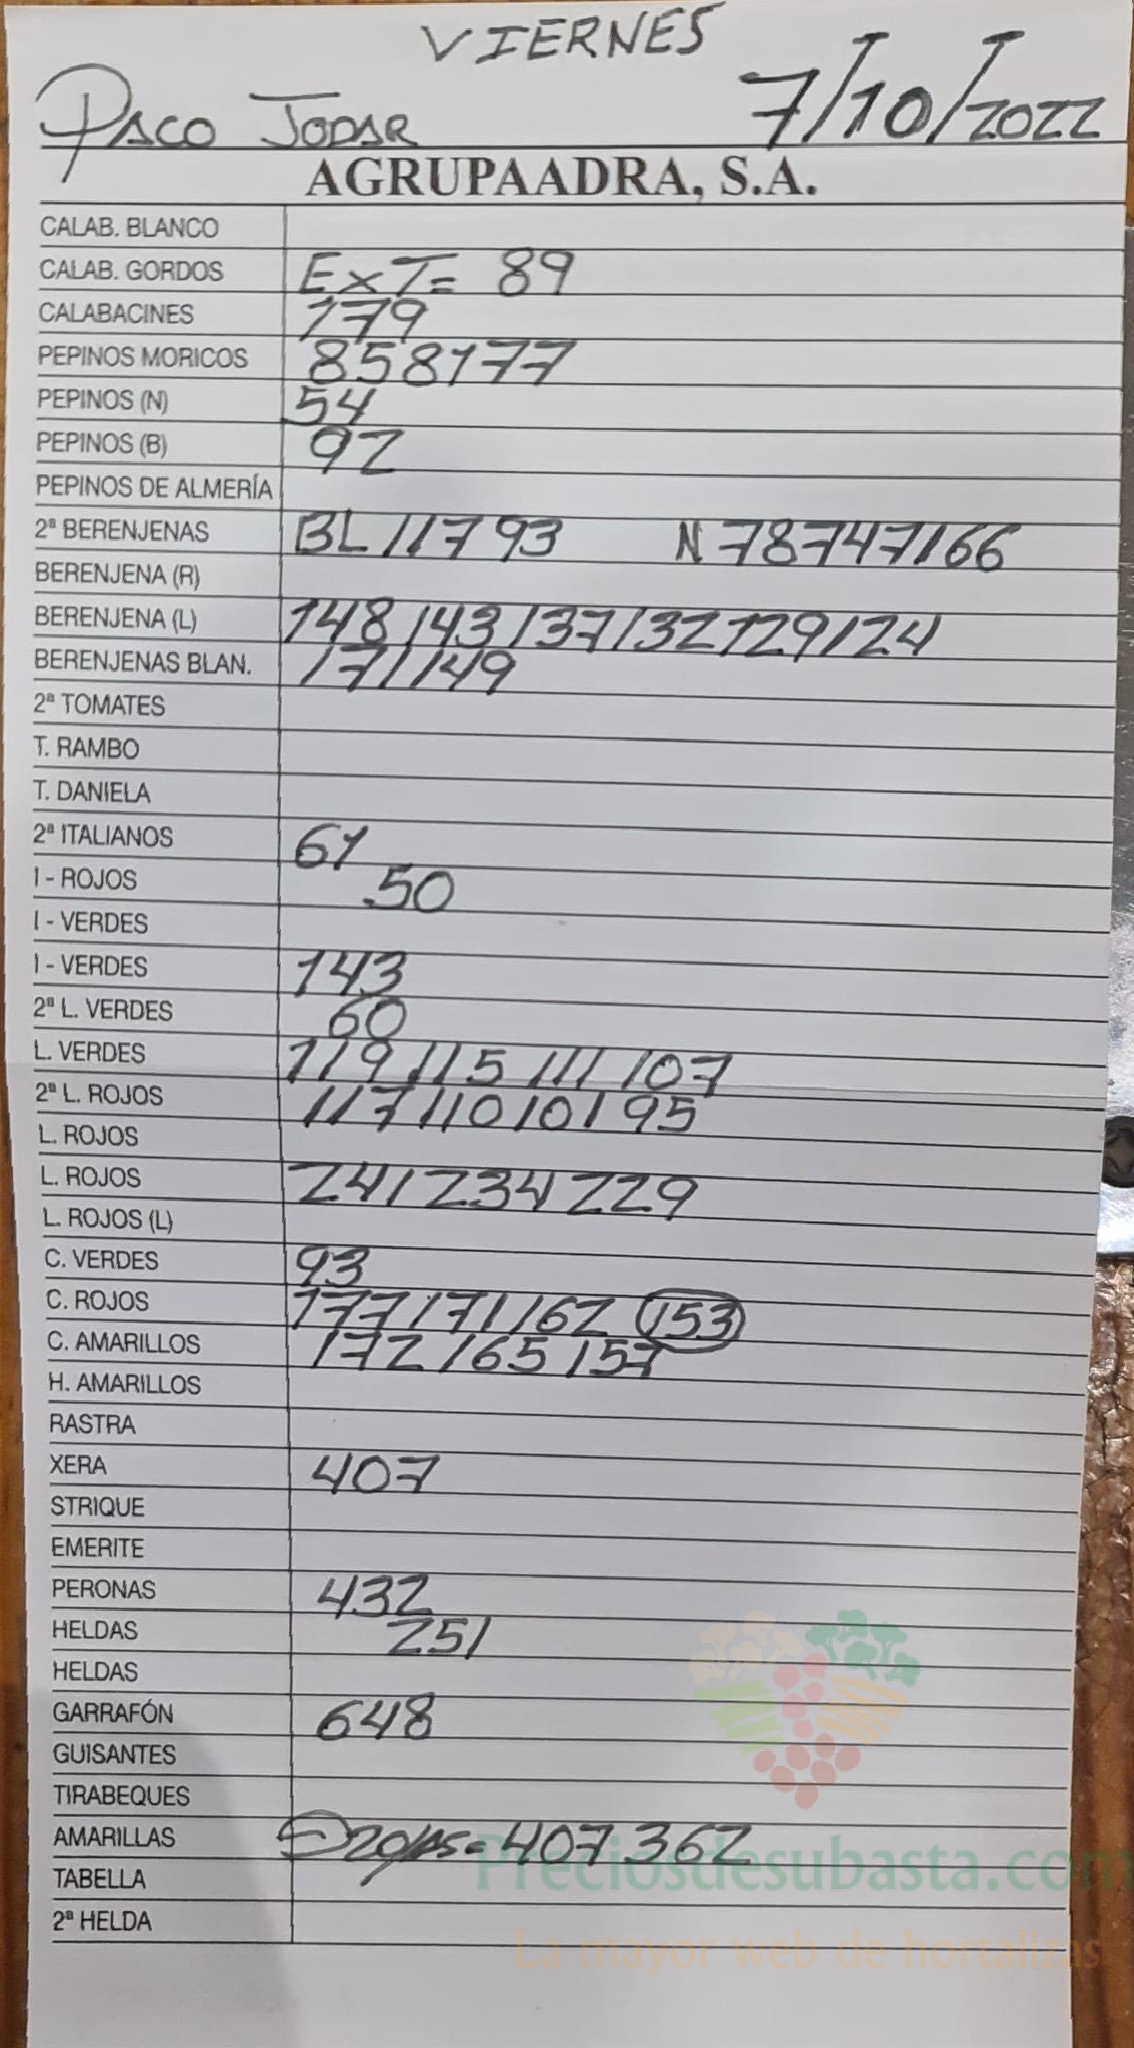 VIERNES
PACO JODAR 7/10/2022
AGRUPAADRA, S.A.
CALAB. BLANCO
CALAB. GORDOS EXT= 89
CALABACINES 179
PEPINOS MORICOS 85 81 77
PEPINOS (N) 54
PEPINOS (B) 92
PEPINOS DE ALMERÍA
2ª BERENJENAS BL 117 93 N 78 74 71 66
BERENJENA (R)
BERENJENA (L) 148 143 137 132 129 124
BERENJENAS BLAN. 171 149
2ª TOMATES
T. RAMBO
T. DANIELA
2ª ITALIANOS 61
I - ROJOS 50
I - VERDES
I - VERDES 143
2ª L. VERDES 60
L. VERDES 119 115 111 107
2ª L. ROJOS 117 110 101 95
L. ROJOS
L. ROJOS 241 234 229
L. ROJOS (L)
C. VERDES 93
C. ROJOS 177 171 162 153
C. AMARILLOS 172 165 157
H. AMARILLOS
RASTRA
XERA 407
STRIQUE
EMERITE
PERONAS 432
HELDAS 251
HELDAS
GARRAFÓN 648
GUISANTES
TIRABEQUES
AMARILLAS 407 362
TABELLA
2ª HELDA
Preciosdesubasta.com
La mayor web de hortalizas